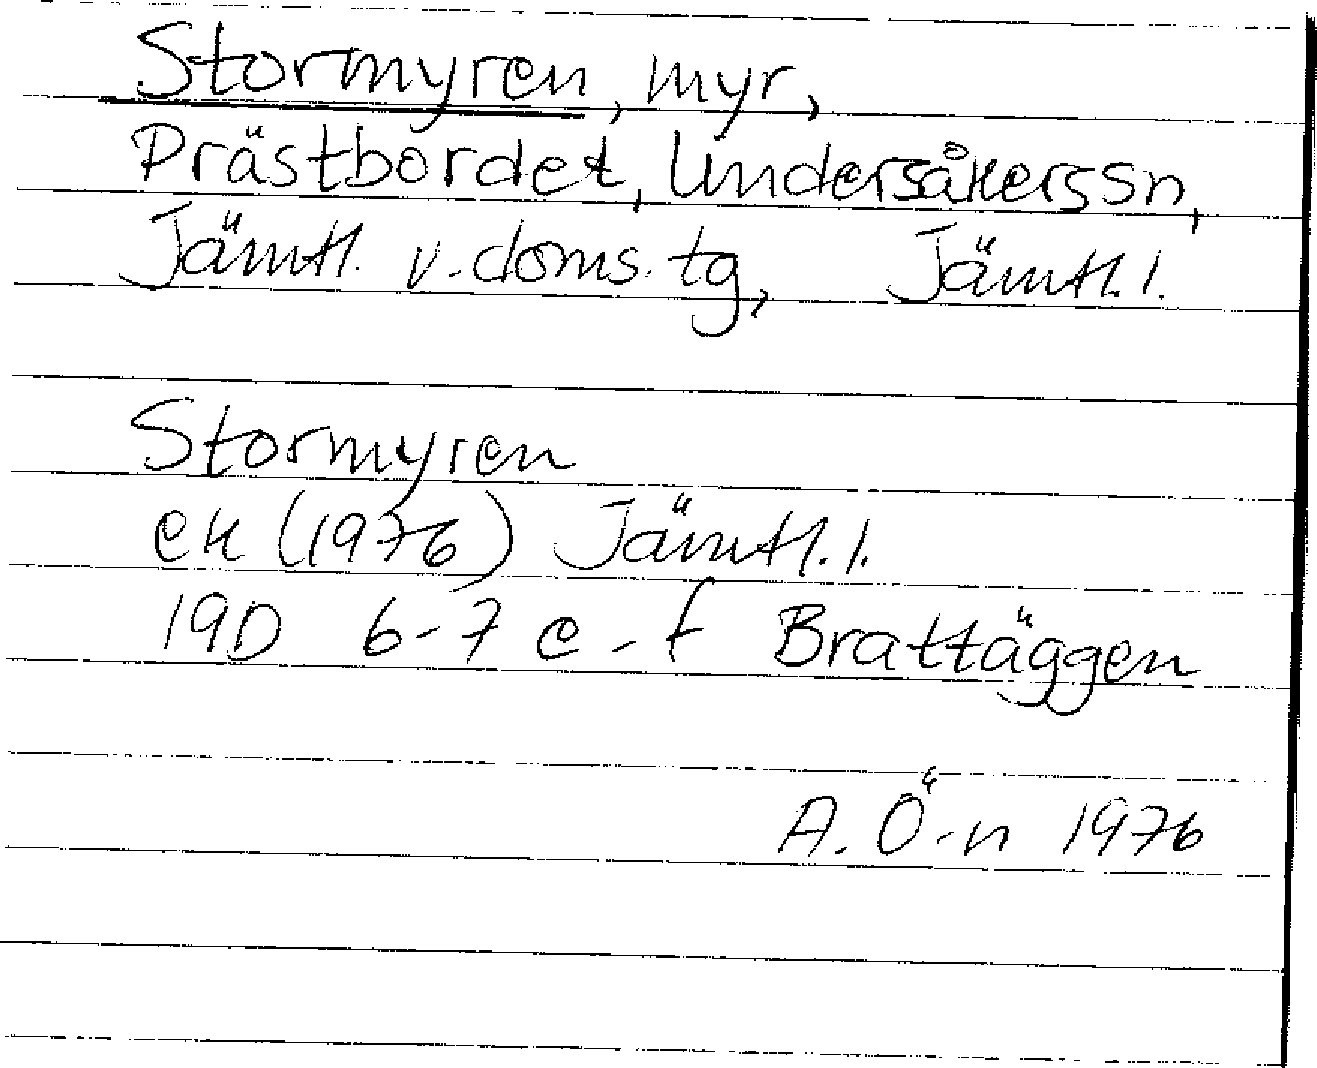 Stormyren, myr,
Prästbordet, Undersåkerssn,
Jämtl. v. doms. tg, Jämtl. l.
Stormyren
ek (1976) Jämtl. l.
19D 6-7 e-f Brattäggen
A. Ö-n 1976